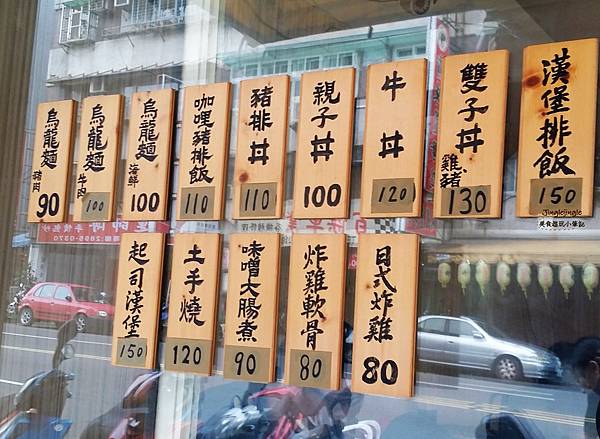 烏龍麵 豬肉 90
烏龍麵 牛肉 100
烏龍麵 海鮮 100
咖哩豬排飯 110
豬排丼 110
親子丼 100
牛丼 120
雙子丼 雞豬 130
漢堡排飯 150
起司漢堡 150
土手燒 120
味噌大腸煮 90
炸雞軟骨 80
日式炸雞 80
Jinglejingle
美食遊玩小筆記